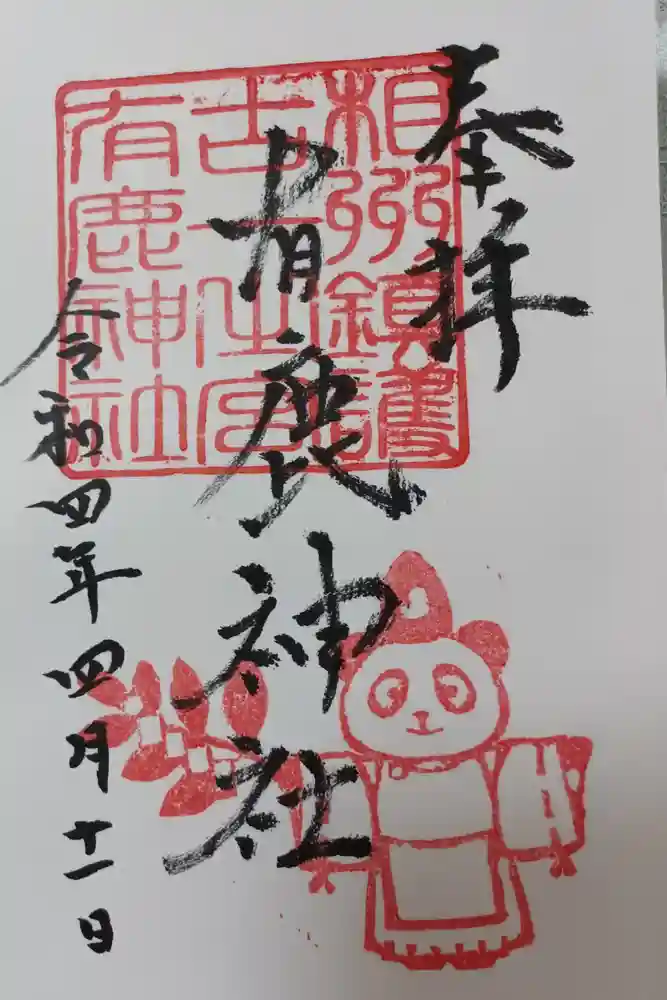 奉拝
有鹿神社
令和四年四月十一日
相州鎮護
古一之宮
有鹿神社